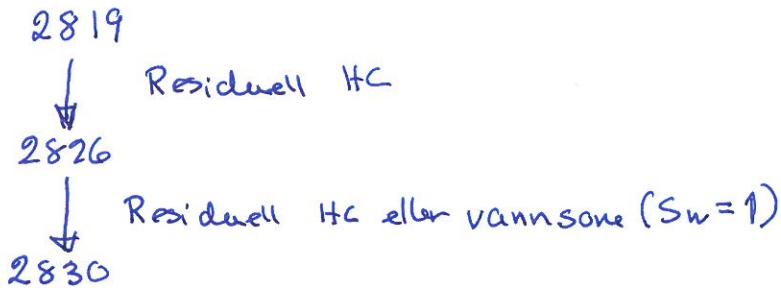 2819
Residuell HC
2826
Residuell HC eller vannsone (Sw=1)
2830